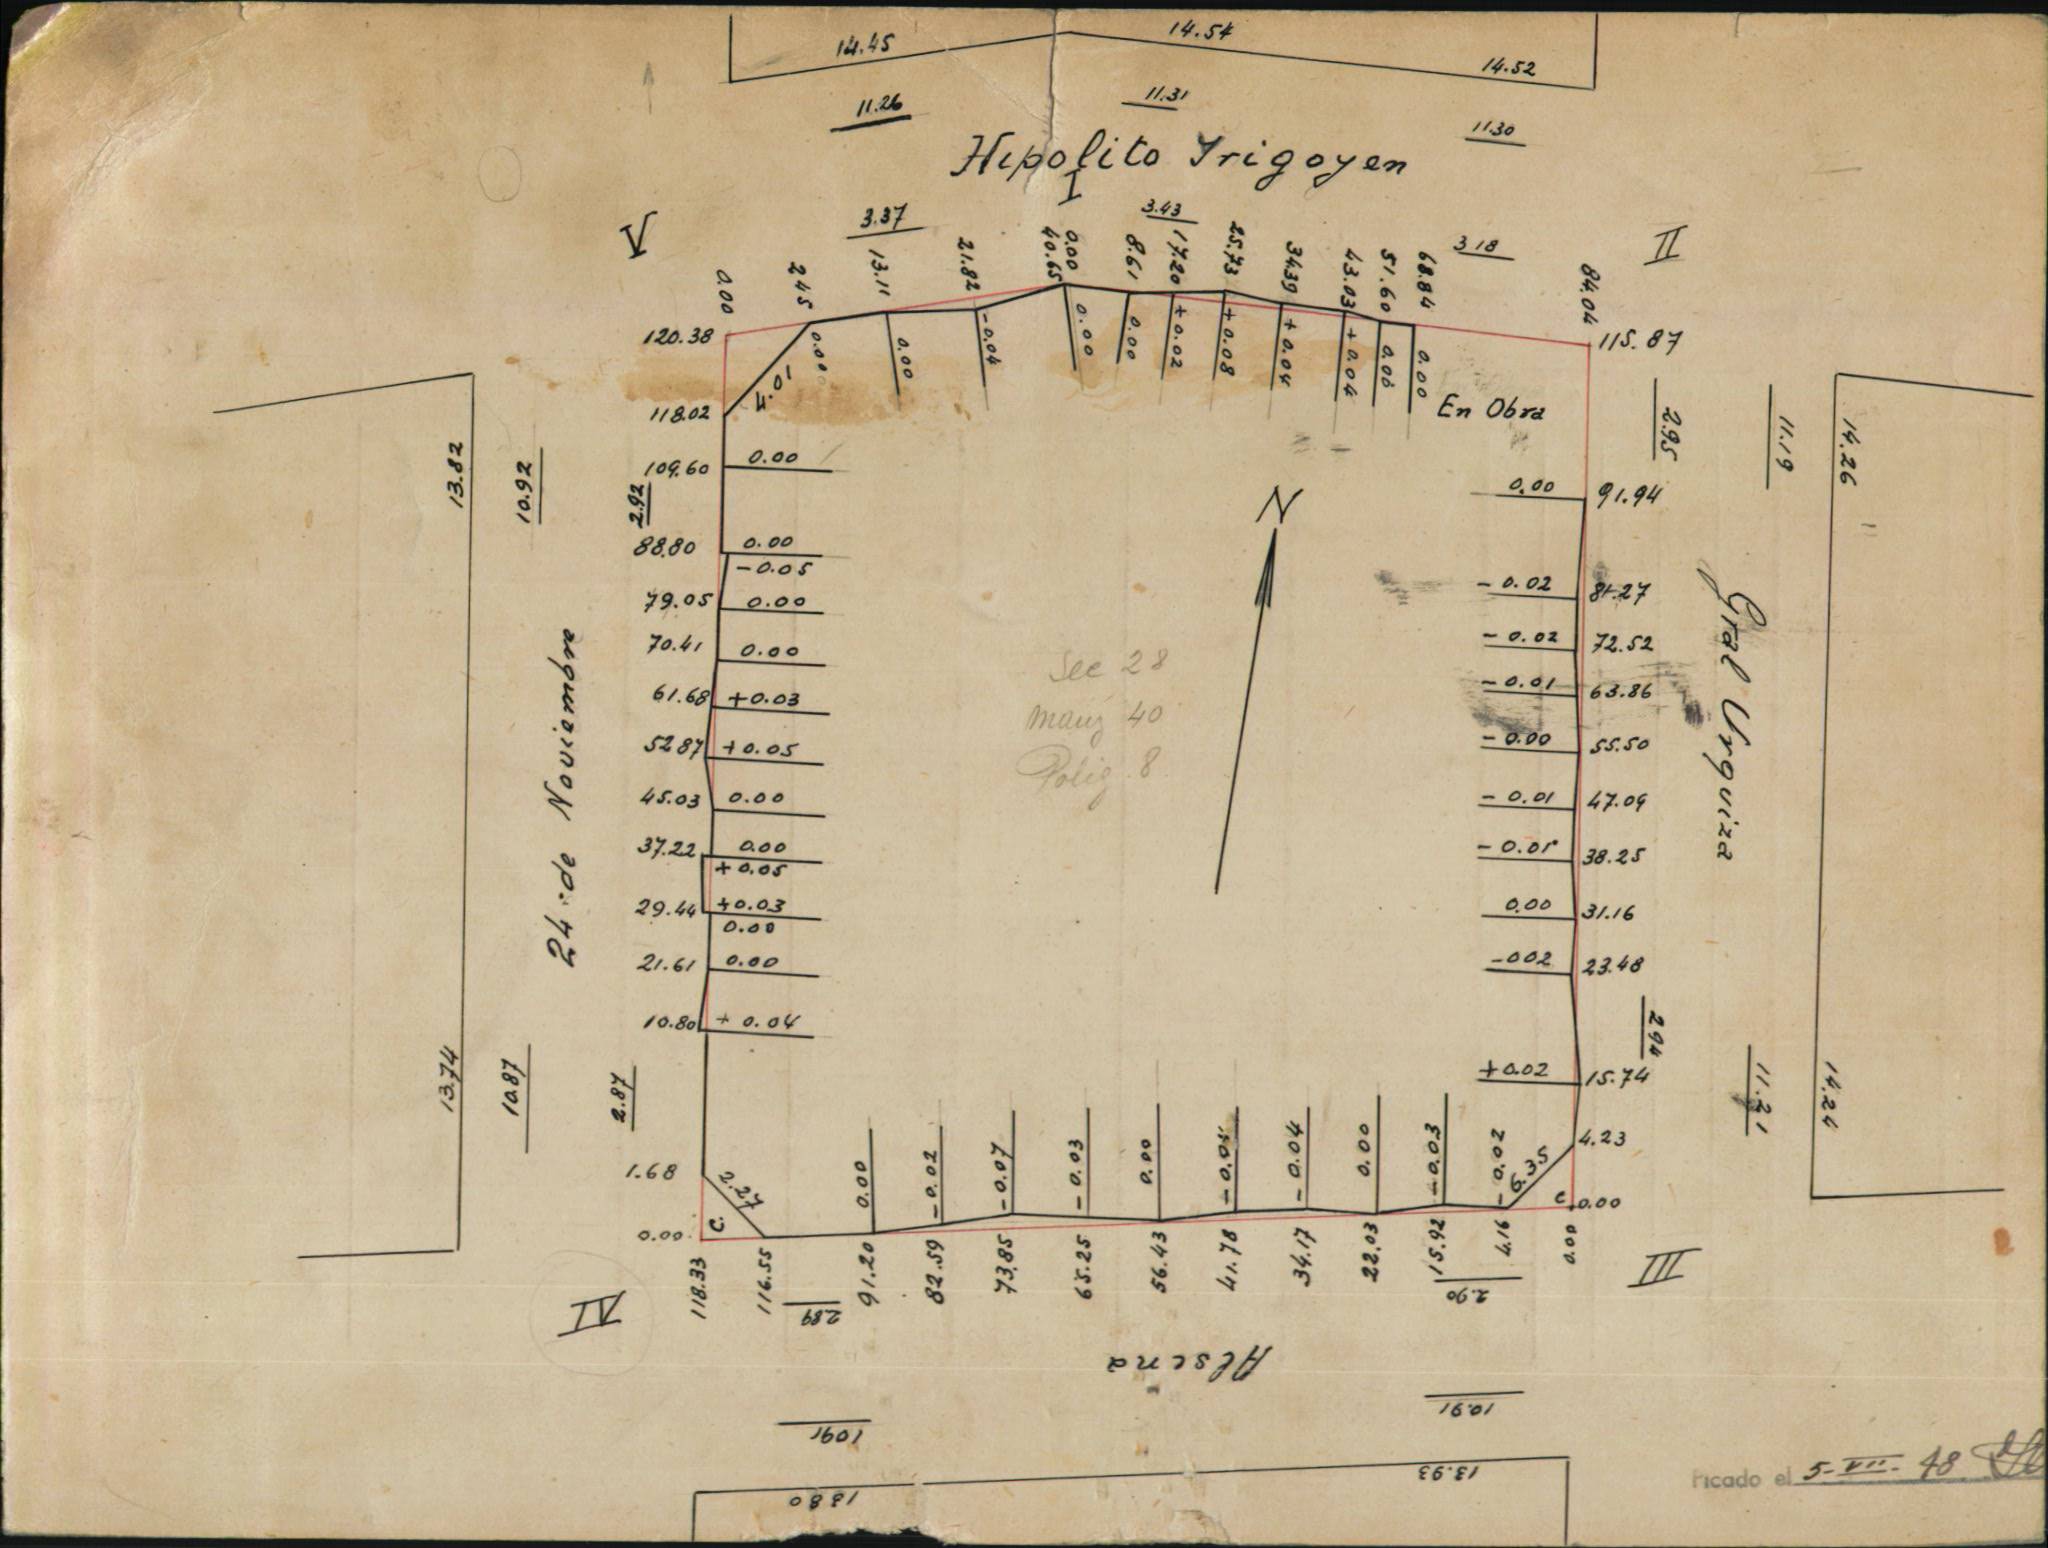 14.45
14.54
14.52
11.26
11.31
11.30
Hipolito Yrigoyen
I
V
3.37
3.43
3.18
II
0.00
2.45
13.11
21.82
40.65
0.00
8.61
17.20
25.73
34.39
43.03
51.60
68.84
84.04
120.38
115.87
0.00
0.00
-0.04
0.00
0.00
+0.02
+0.08
+0.04
+0.04
0.00
0.00
En Obra
118.02
109.60 0.00
88.80 0.00
-0.05
79.05 0.00
70.41 0.00
61.68 +0.03
52.87 +0.05
45.03 0.00
37.22 0.00
+0.05
29.44 +0.03
0.00
21.61 0.00
10.80 +0.04
1.68
2.27
C.
0.00
13.82
10.92
2.92
24 de Noviembre
13.74
10.87
2.87
N
Sec 28
Manz 40
Polig. 8
0.00 91.94
-0.02 81.27
-0.02 72.52
-0.01 63.86
-0.00 55.50
-0.01 47.09
-0.01 38.25
0.00 31.16
-002 23.48
+0.02 15.74
4.23
6.35
c 0.00
2.95
11.19
14.26
Gral Urquiza
2.94
11.21
14.24
0.00
-0.02
-0.07
-0.03
0.00
-0.05
-0.04
0.00
-0.03
-0.02
118.33
116.55
91.20
82.59
73.85
65.25
56.43
41.78
34.17
22.03
15.92
4.16
0.00
IV
III
2.89
2.90
Alsina
1091
10.91
13.80
13.93
Picado el 5-VII-48